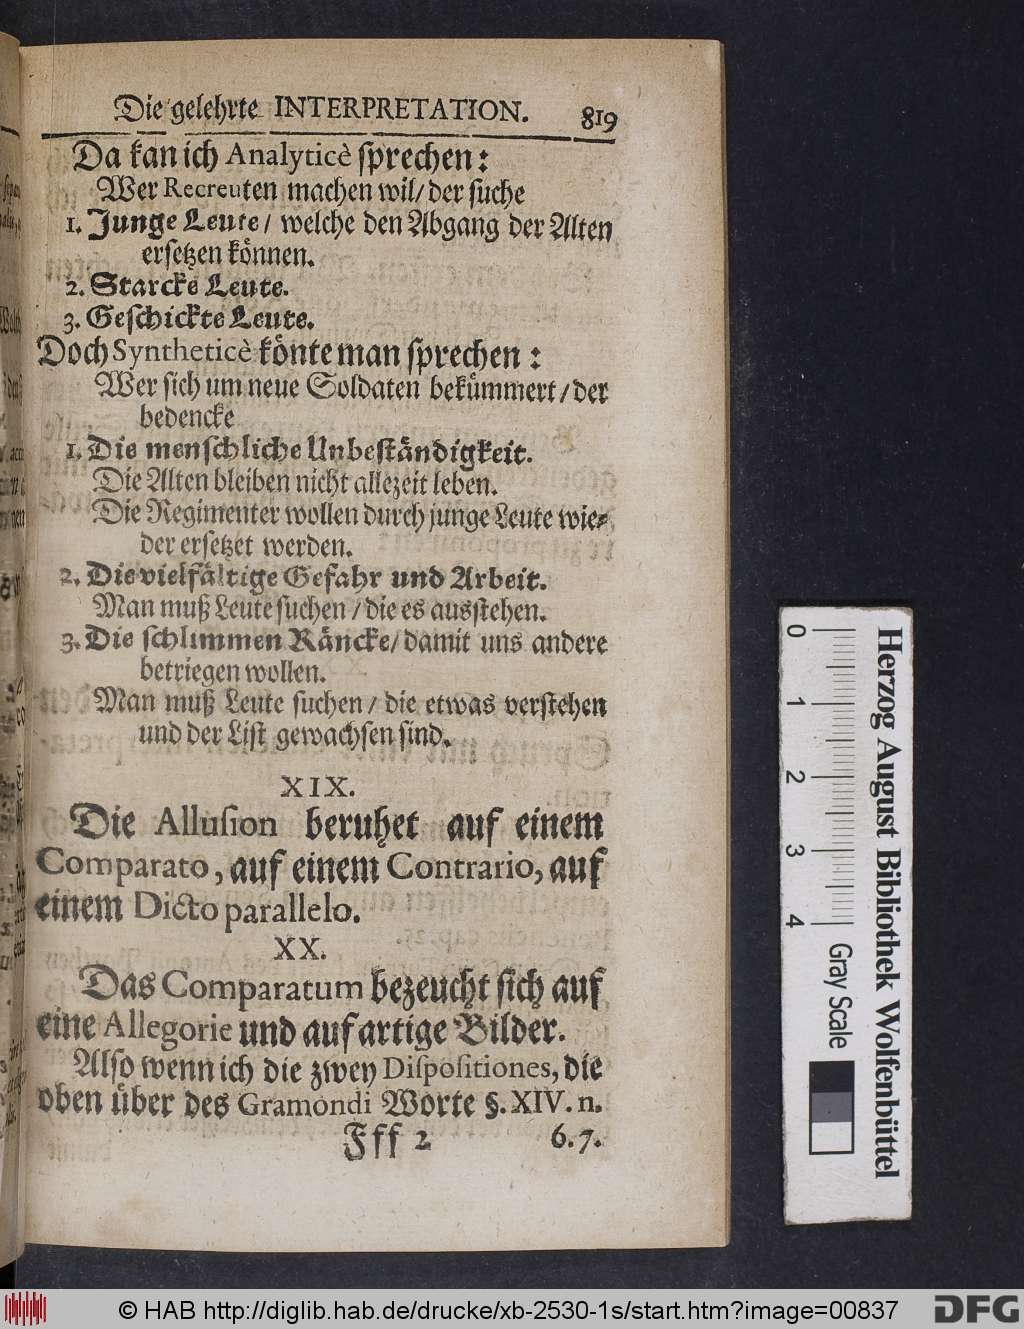 Die gelehrte INTERPRETATION. 819
Da kan ich Analyticè sprechen:
Wer Recreuten machen wil/ der suche
1. Junge Leute/ welche den Abgang der Alten
ersetzen können.
2. Starcke Leute.
3. Geschickte Leute.
Doch Syntheticè könte man sprechen:
Wer sich um neue Soldaten bekümmert/ der
bedencke
1. Die menschliche Unbeständigkeit.
Die Alten bleiben nicht allezeit leben.
Die Regimenter wollen durch junge Leute wie-
der ersetzet werden.
2. Die vielfältige Gefahr und Arbeit.
Man muß Leute suchen/ die es ausstehen.
3. Die schlimmen Räncke/ damit uns andere
betriegen wollen.
Man muß Leute suchen/ die etwas verstehen
und der List gewachsen sind.
XIX.
Die Allusion beruhet auf einem
Comparato, auf einem Contrario, auf
einem Dicto parallelo.
XX.
Das Comparatum bezeucht sich auf
eine Allegorie und auf artige Bilder.
Also wenn ich die zwey Dispositiones, die
oben über des Gramondi Worte §. XIV. n.
Fff 2 6. 7.
0 1 2 3 4 Gray Scale
Herzog August Bibliothek Wolfenbüttel
© HAB http://diglib.hab.de/drucke/xb-2530-1s/start.htm?image=00837
DFG